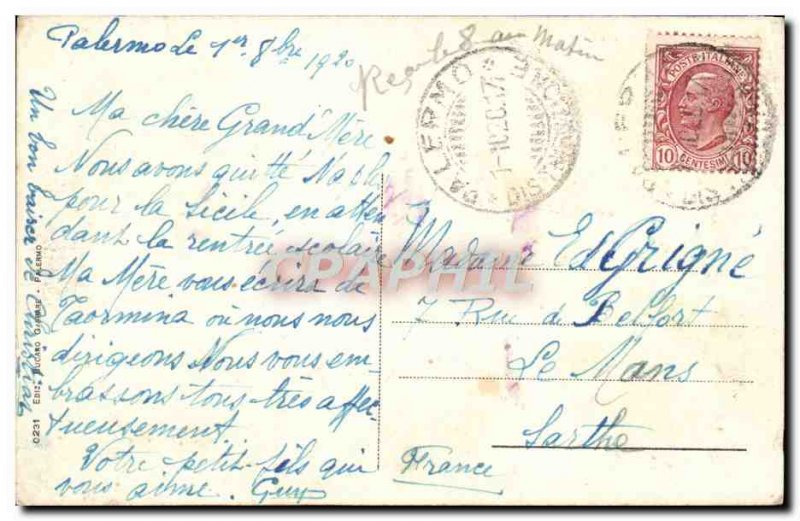 Palermo Le 1er 8bre 1920
Ma chère Grand'Mère
Nous avons quitté Napl
pour la Sicile, en atten
dant la rentrée scolaire
Ma Mère vous écrira de
Taormina où nous nous
dirigeons Nous vous em-
brassons tous très affec-
tueusement
Votre petit-fils qui
vous aime. Guy
Un bon baiser de
0231 EDIZ. GASPARE - PALERMO
au Matin
PALERMO
POSTE ITALIANE
10 CENTESIMI 10
Madame Es Grigné
7 Rue de Belfort
Le Mans
Sarthe
France
CPAPHIL